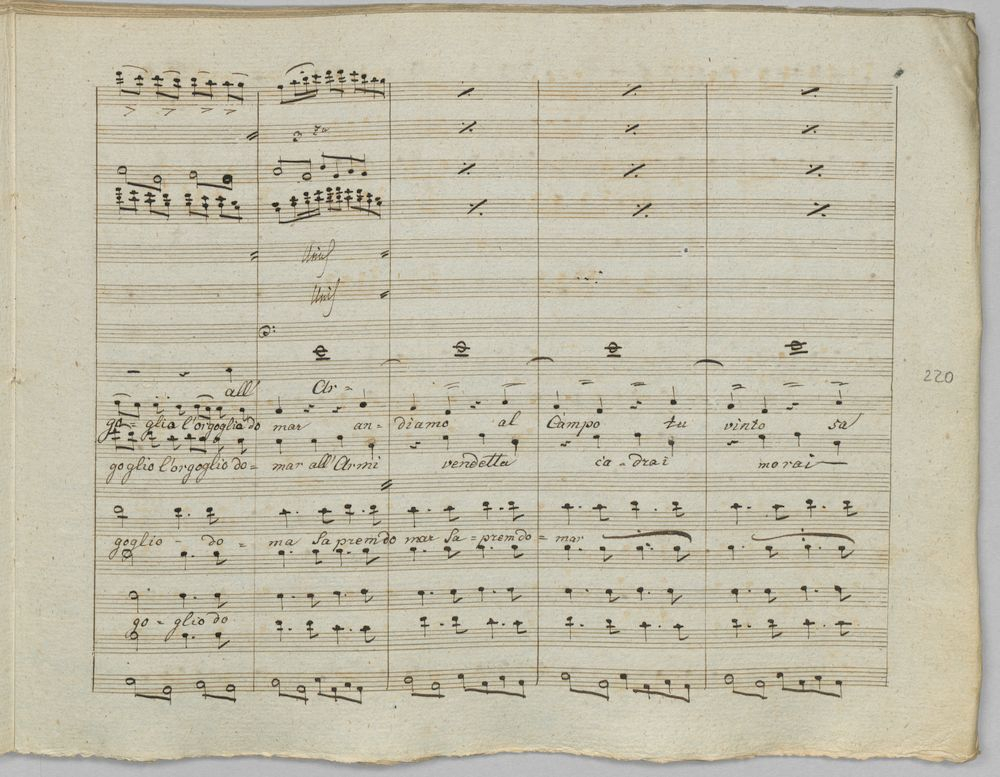 Unis
Unis
all' Ar =
220
go = glio l'orgoglio do mar an = diamo al Campo tu vinto sa
goglio l'orgoglio do = mar all'Armi vendetta ca = drai morai
goglio - do = ma Sapremdo mar Sa = premdo = mar
go = glio do